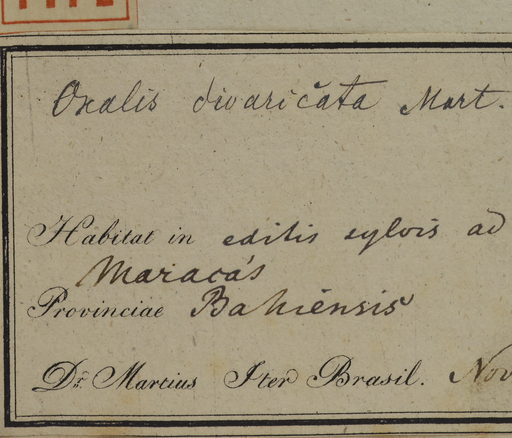 TYPE
Oxalis divaricata Mart.
Habitat in editis sylvis ad
Maracás
Provinciae Bahiensis
Dr. Martius Iter Brasil. Nov